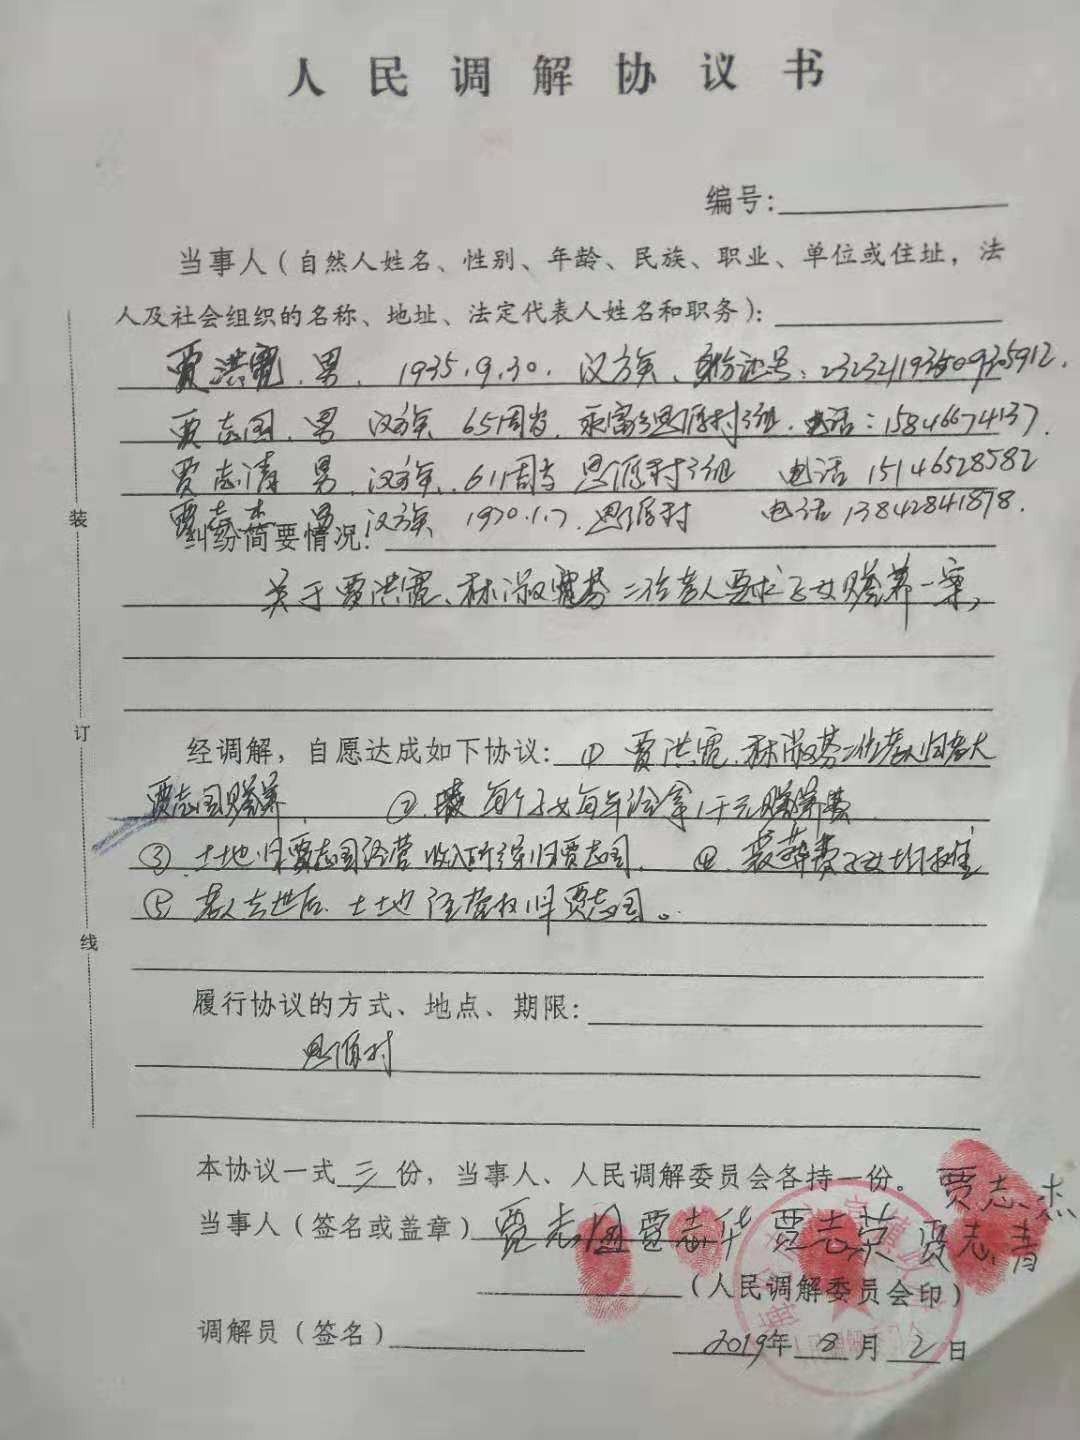 人民调解协议书
编号:
当事人（自然人姓名、性别、年龄、民族、职业、单位或住址，法
人及社会组织的名称、地址、法定代表人姓名和职务）:
贾洪霓.男. 1935.9.30. 汉族、身份证号:
贾志国.男 汉族 65周岁. 永富乡思源村3组. 电话:15846674137.
贾志清 男.汉族.61周岁 思源村3组 电话 15146528582
贾志杰 男 汉族 1970.1.7.思源村 电话13842841878.
纠纷简要情况:
关于贾洪霓、林淑芬二位老人要求子女赡养一案,
装
订
线
经调解，自愿达成如下协议: ① 贾洪霓.林淑芬二位老人归老大
贾志国赡养. ② 每个子女每年给拿1千元赡养费
③.土地归贾志国经营 收入所得归贾志国. ④.丧葬费子女均摊
⑤ 老人去世后.土地经营权归贾志国。
履行协议的方式、地点、期限:
思源村
本协议一式三份，当事人、人民调解委员会各持一份。 贾志杰
当事人（签名或盖章）贾志国 贾志华 贾志荣 贾志清
（人民调解委员会印）
调解员（签名） 2019年8月2日